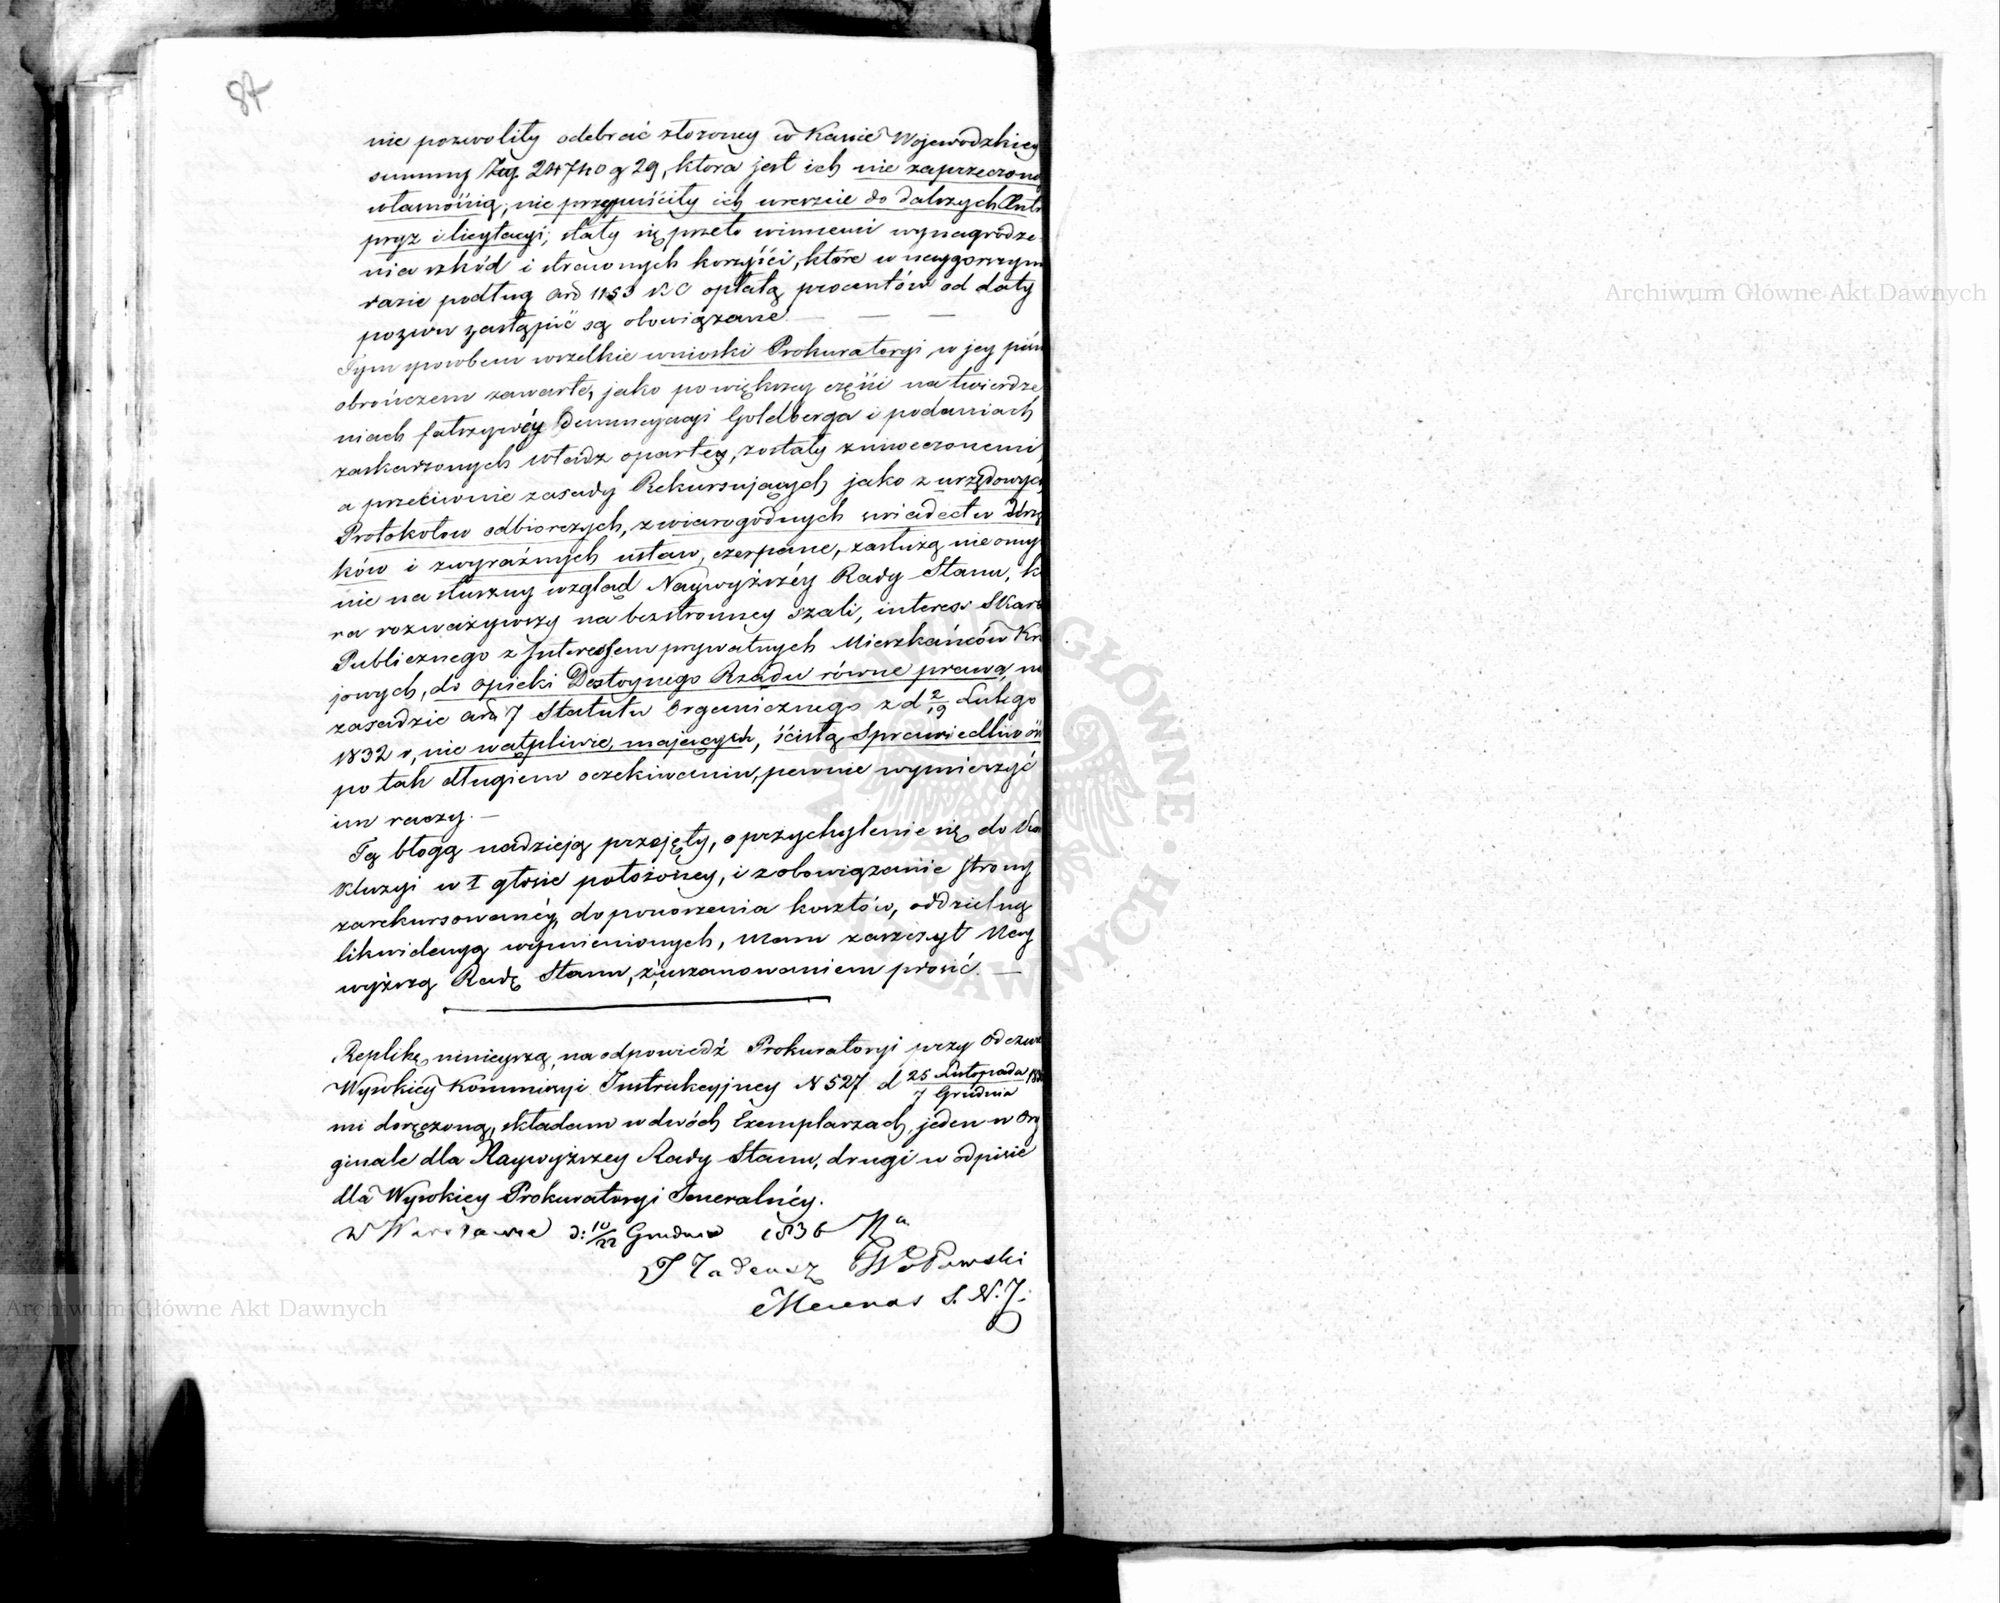 87
nie pozwoliły odebrać złożoney w Kassie Wojewódzkiey
summy Złp. 24740 g 29, ktora jest ich nie zaprzeczoną
własnością, nie przypuściły ich wreszcie do dalszych Entre
pryz i licytacyi; stały się przeto winnemi wynagrodze
nia szkód i straconych korzyści, które w naygorszym
razie podług Art 1153 KC opłatą procentów od daty
pozwu zastąpić są obowiązane. — — —
Tym sposobem wszelkie wnioski Prokuratoryi, w jey piśm
obrończem zawarte, jako po większey części na twierdze
niach fałszywéy Denuncyacyi Goldberga i podaniach
zaskarzonych władz oparte, zostały zniweczonemi,
a przeciwnie zasady Rekursujących jako z urzędowych
Protokołow odbiorczych, z wiarogodnych swiadectw
ków i z wyraźnych ustaw, czerpane, zasłużą nieomyl
nie na słuszny wzgląd Naywyższéy Rady Stanu, kt
ra rozważywszy na bezstronney szali, interess Skarb
Publicznego z Interessem prywatnych Mieszkańców Kra
jowych, do opieki Dostoynego Rządu równe prawa, na
zasadzie Art 7 Statutu Organicznego z d 2/19 Lutego
1832 r, nie wątpliwie, mających, ścisłą Sprawiedliwość
po tak długiem oczekiwaniu, pewnie wymierzyć
im raczy. —
Tą błogą nadzieją przejęty, o przychylenie się do Kon
kluzyi w I głosie położoney, i zobowiązanie strony
zarekursowanéy, do ponoszenia kosztów, oddzielną
likwidacyą wymienionych, mam zaszczyt Nay
wyższą Radę Stanu, z uszanowaniem prosić. —
Replikę ninieyszą, na odpowiedź Prokuratoryi przy Odezwie
Wysokiey Kommissyi Instrukcyjney N 527 d 25 Listopada/7 Grudnia 183
mi doręczoną, składam w dwóch Exemplarzach, jeden w Ory
ginale dla Naywyższey Rady Stanu, drugi w odpisie
dla Wysokiey Prokuratoryi Jeneralnéy.
W Warszawie d: 10/22 Grudnia 1836 Ra
J Tadeusz Wołowski
Mecenas S. N. J.
Archiwum Główne Akt Dawnych
Archiwum Główne Akt Dawnych
GŁÓWNE
DAWNYCH